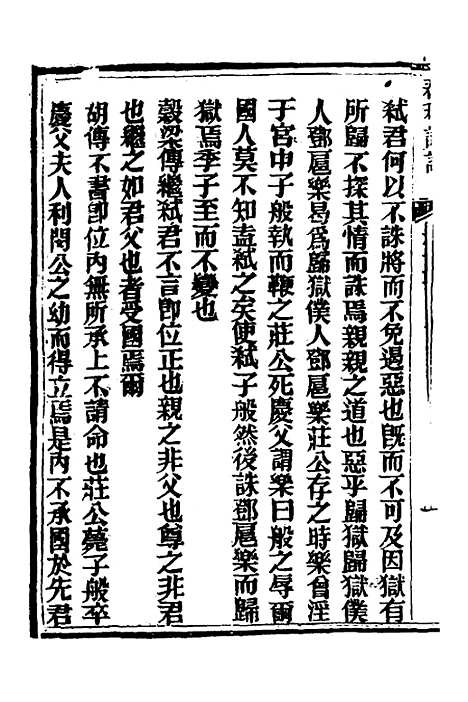 弒君何以不誅將而不免遏惡也旣而不可及因獄有
所歸不探其情而誅焉親親之道也惡乎歸獄歸獄僕
人鄧扈樂曷爲歸獄僕人鄧扈樂莊公存之時樂曾淫
于宮中子般執而鞭之莊公死慶父謂樂曰般之辱爾
國人莫不知盍弒之矣使弒子般然後誅鄧扈樂而歸
獄焉季子至而不變也
穀梁傳繼弒君不言卽位正也親之非父也尊之非君
也繼之如君父也者受國焉爾
胡傳不書卽位內無所承上不請命也莊公薨子般卒
慶父夫人利閔公之幼而得立焉是內不承國於先君